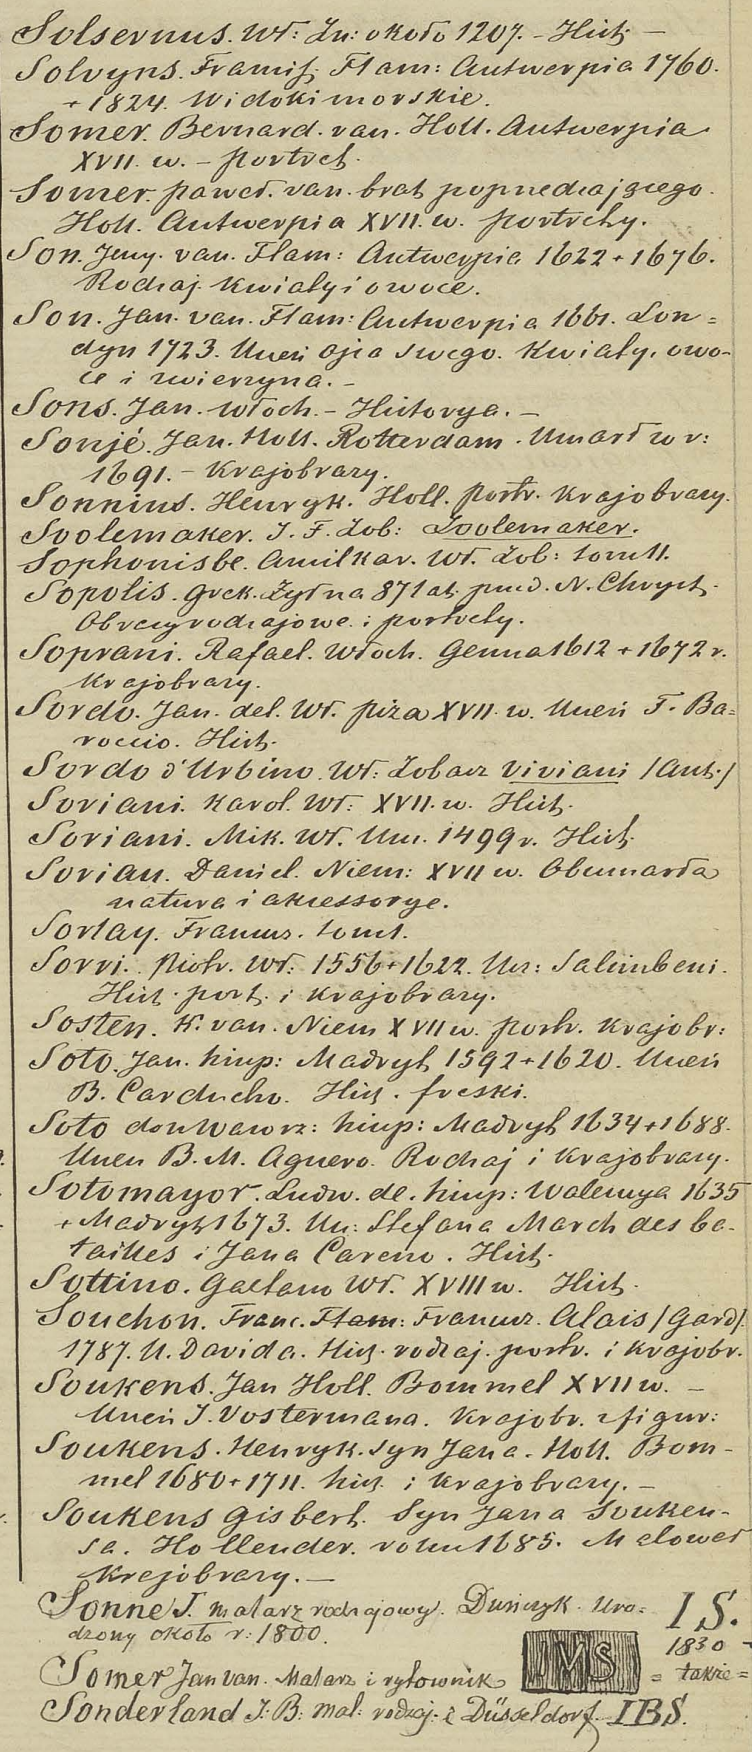 Solsernus. Wł: Żn: około 1207. – Hist. –
Solvyns. Franciś. Flam: Antwerpia 1760.
+ 1824. Widoki morskie.
Somer. Bernard. van. Holl. Antwerpia
XVII. w. – portret.
Somer. paweł. van. brat poprzedzającego.
Holl. Antwerpia XVII. w. portrety.
Son. Jerzy. van. Flam: Antwerpia 1622 + 1676.
Rodzaj. Kwiaty i owoce.
Son. Jan. van. Flam: Antwerpia 1661. Lon=
dyn 1723. Uczeń ojca swego. Kwiaty, owo-
ce i zwierzyna. –
Sons. Jan. Włoch. – Historya. –
Sonjé. Jan. Holl. Rotterdam. Umarł w r:
1691. – Krajobrazy.
Sonnius. Henryk. Holl. portr. Krajobrazy.
Soolemaker. I. F. Zob: Zoolemaker.
Sophonisbe. Amilkar. Wł. Zob: tom II.
Sopolis. Grek. Żył na 871 at. przed. N. Chryst.
Obrazy rodzajowe i portrety.
Soprani. Rafael. Włoch. Genua 1612 + 1672 r.
Krajobrazy.
Sordo. Jan. del. Wł. piza XVII. w. Uczeń F. Ba=
roccio. Hist.
Sordo d'Urbino. Wł: Zobacz Viviani /Ant./
Soriani. Karol. Wł: XVII. w. Hist.
Soriani. Mik. Wł. Um. 1499 r. Hist.
Sorian. Daniel. Niem: XVII w. Obumarła
natura i akcessorye.
Sorlay. Francuz. tom I.
Sorri. Piotr. Wł: 1556 + 1622. Ucz: Salimbeni.
Hist. port. i Krajobrazy.
Sosten. K. van. Niem XVII w. portr. Krajobr:
Soto. Jan. hisp: Madryt 1592 + 1620. Uczeń
B. Carducho. Hist. freski.
Soto don Wawrz: hisp: Madryt 1634 + 1688.
Uczeń B. M. Aguero. Rodzaj i Krajobrazy.
Sotomayor. Ludw. de. hisp: Walencya 1635
+ Madryt 1673. Uc: Stefana March des ba-
tailles i Jana Careno. Hist.
Sottino. Gaetano Wł. XVIII w. Hist.
Souchon. Franc. Flam: Francuz. Alais /Gard/.
1787. U. Davida. Hist. rodzaj. portr. i Krajobr.
Soukens. Jan Holl. Bommel XVII w. –
Uczeń J. Vostermana. Krajobr. z figur:
Soukens. Henryk. syn Jana. Holl. Bom-
mel 1680 + 1711. hist. i Krajobrazy. –
Soukens Gisbert. Syn Jana Souken-
sa. Hollender. roku 1685. Malował
Krajobrazy. –
Sonne J. malarz rodzajowy. Duńczyk. Uro= I S.
dzony około r: 1800. 1830 –
Somer Jan van. Malarz i rytownik JVS = także =
Sonderland J. B: mal: rodzaj: z Düsseldorf. IBS.